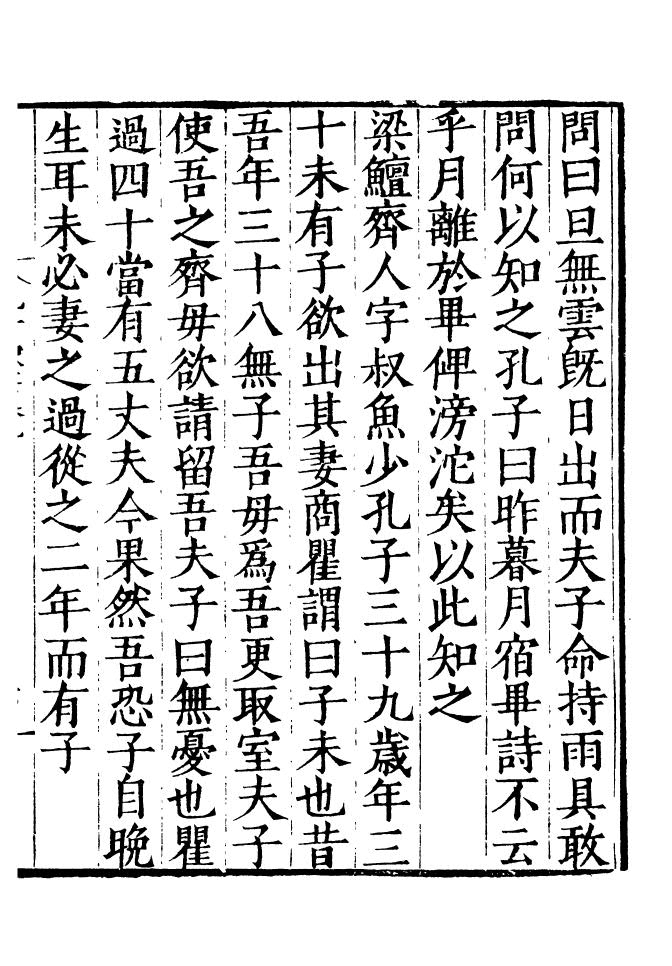 問曰旦無雲旣日出而夫子命持雨具敢
問何以知之孔子曰昨暮月宿畢詩不云
乎月離於畢俾滂沱矣以此知之
梁鱣齊人字叔魚少孔子三十九歲年三
十未有子欲出其妻商瞿謂曰子未也昔
吾年三十八無子吾母爲吾更取室夫子
使吾之齊母欲請留吾夫子曰無憂也瞿
過四十當有五丈夫今果然吾恐子自晚
生耳未必妻之過從之二年而有子